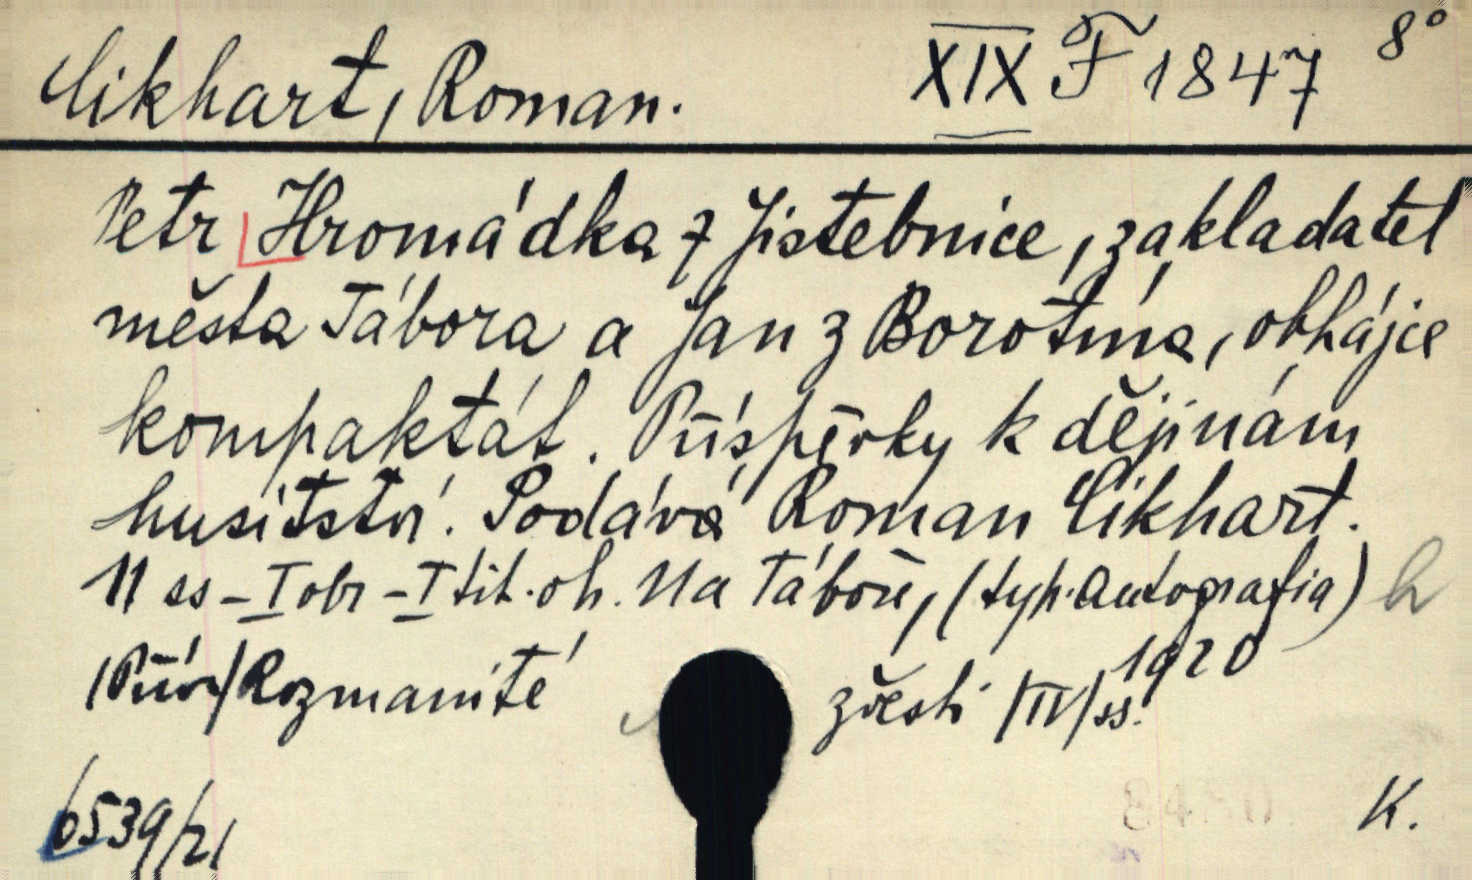 Cikhart, Roman. XIX F 1847 8°
Petr Hromádka z Jistebnice, zakladatel
města Tábora a Jan z Borotína, obhájce
kompaktát. Příspěvky k dějinám
husitství. Podává Roman Cikhart.
11 ss – I obr – I tit. ob. Na Táboře, (typ. Autografia)
1920
(Pův) Rozmanité zvěsti /IV/ ss.
6539/21 K.